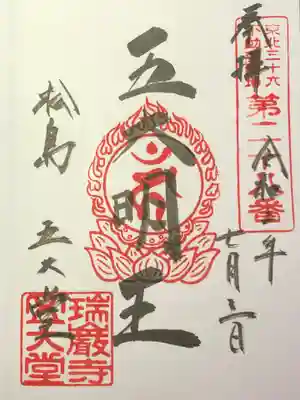 奉拝
東北三十六
不動尊霊場
第二十九番
令和二年
七月二日
五大明王
松島 五大堂
瑞巖寺
五大堂